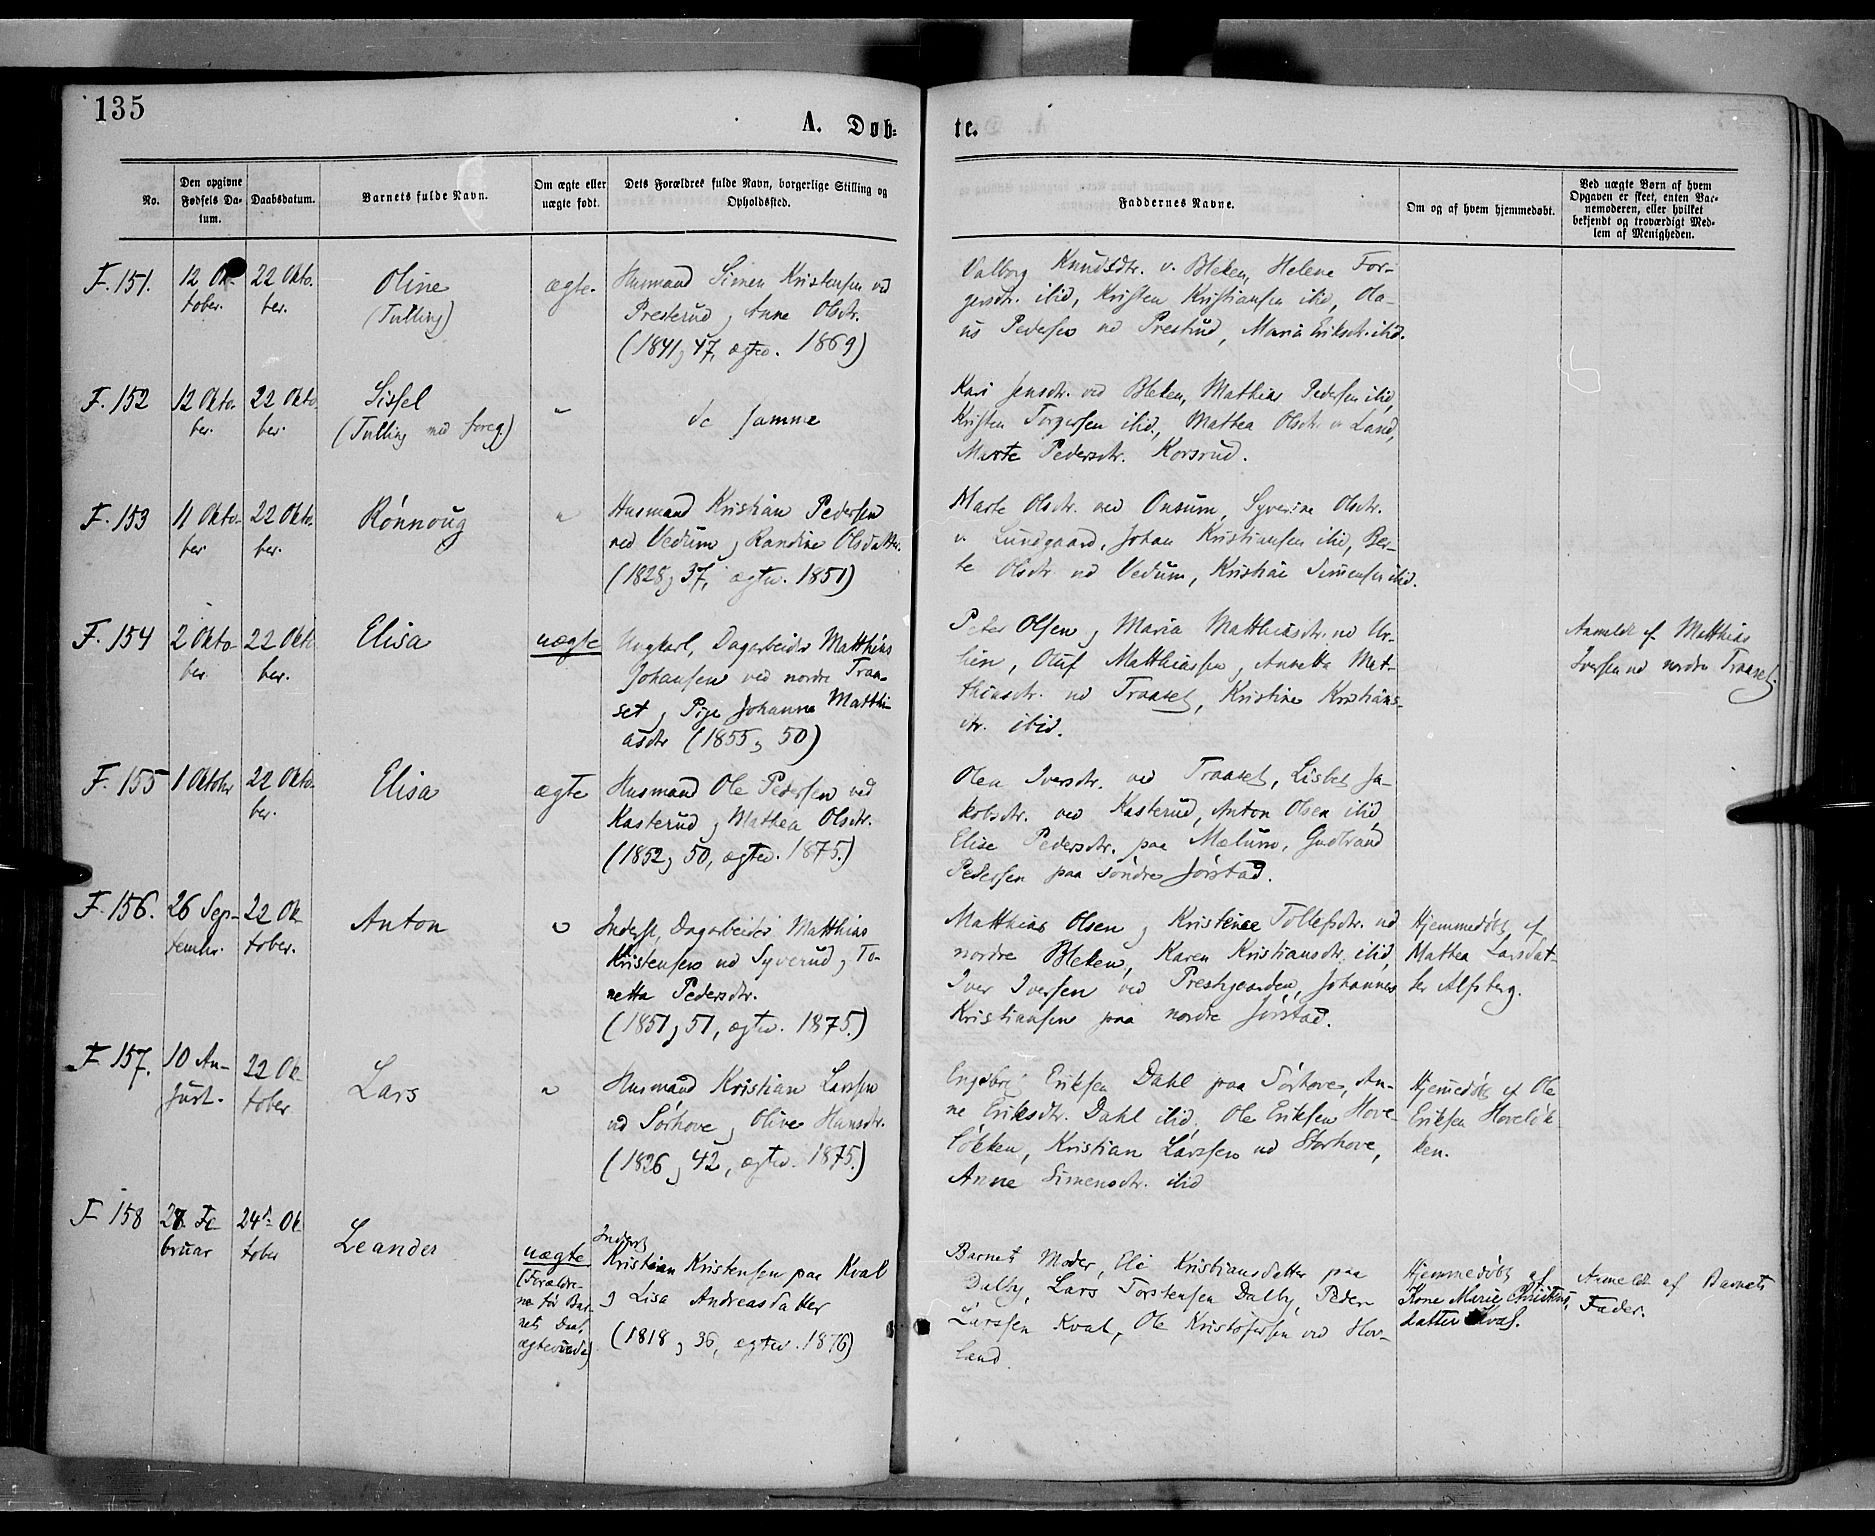 135
A. Døb-
te.
No.
Den opgivne
Fødsels Da-
tum.
Daabsdatum.
Barnets fulde Navn.
Om ægte eller
uægte født.
Dets Forældres fulde Navn, borgerlige Stilling og
Opholdssted.
Faddernes Navne.
Om og af hvem hjemmedøbt.
Ved uægte Børn af hvem
Opgaven er skeet, enten Bar-
nemoderen, eller hvilket
bekjendt og troværdigt Med-
lem af Menigheden.
F. 151.
12 Ok-
tober.
22 Okto-
ber.
Oline
(Tvilling)
ægte.
Husmand Simen Kristensen ved
Presterud og Anne Olsdtr.
(1841 og 47, ægtev. 1869)
Valborg Knudsdtr. v. Bleken, Helene Tor-
gersdtr. ibid, Kristen Kristiansen ibid, Ola-
us Pedersen ved Prestrud, Maria Eriksdtr. ibid.
F. 152
12 Okto-
ber.
22 Okto-
ber.
Sissel
(Tvilling med foreg.)
"
de samme
Kari Jensdtr. ved Bleken, Mathias Pedersen ibid,
Kristen Torgersen ibid., Mathea Olsdtr. v. Land,
Marte Pedersdtr. Korsrud.
F. 153
11 Okto-
ber
22 Okto-
ber.
Rønnoug
"
Husmand Kristian Pedersen
ved Vedum og Randine Olsdatter.
(1828 og 37, ægtev. 1851)
Marte Olsdtr. ved Onsum, Syverine Olsdtr.
v. Lundgaard, Johan Kristiansen ibid, Ber-
te Olsdtr. ved Vedum, Kristian Simensen ibid.
F. 154
2 Okto-
ber.
22 Okto-
ber.
Elisa
uægte
Ungkarl, Dagarbeider Matthias
Johansen ved nordre Traa-
set og Pige Johanna Matthi-
asdtr (1855 og 50)
Peter Olsen og Maria Matthiasdtr. ved Ur-
lien, Oluf Matthiassen og Annetta Mat-
thiasdtr. ved Traaset, Kristine Kristians-
dtr. ibid.
Anmeldt af Matthias
Iversen ved nordre Traaset.
F. 155
1 Oktober
22 Okto-
ber.
Elisa
ægte
Husmand Ole Pedersen ved
Kasterud og Mathea Olsdtr.
(1852 og 50, ægtev. 1875.)
Olea Iversdtr. ved Traaset, Lisbet Ja-
kobsdtr. ved Kasterud, Anton Olsen ibid,
Elise Pedersdtr. paa Mælum, Gudbrand
Pedersen paa søndre Jørstad.
F. 156.
26 Sep-
tembr.
22 Ok-
tober.
Anton
"
Inderst, Dagarbeider Matthias
Kristensen ved Syverud og To-
netta Pedersdtr.
(1851 og 51, ægtev. 1875.)
Matthias Olsen og Kristense Tollefsdtr. ved
nordre Bleken, Karen Kristiansdtr. ibid,
Iver Iversen ved Prestgaarden, Johannes
Kristiansen paa nordre Jørstad.
Hjemmedøbt af
Mathea Larsdat-
ter Alfsberg.
F. 157.
10 Au-
gust.
22 Ok-
tober
Lars
"
Husmand Kristian Larsen
ved Sørhove og Olive Hansdtr.
(1826 og 42, ægtev. 1875.)
Engebret Eriksen Dahl paa Sørhove, An-
ne Eriksdtr. Dahl ibid, Ole Eriksen Hove-
løkken, Kristian Larssen ved Storhove,
Anne Simensdtr. ibid
Hjemmedøbt af Ole
Eriksen Hoveløk-
ken.
F 158
28. Fe-
bruar
24de Ok-
tober
Leander
uægte
(Forældre-
ne før Bar-
nets Daab
ægteviede)
Inderst
Kristian Kristensen paa Kval
og Lisa Andreasdatter
(1818 og 36, ægtev. 1876)
Barnets Moder, Eli Kristiansdatter paa
Dalby, Lars Torstensen Dalby, Peder
Larssen Kval, Ole Kristofersen ved Hov-
land.
Hjemmedøbt af
Kone Marie Christens-
datter Kval.
Anmeldt af Barnets
Fader.